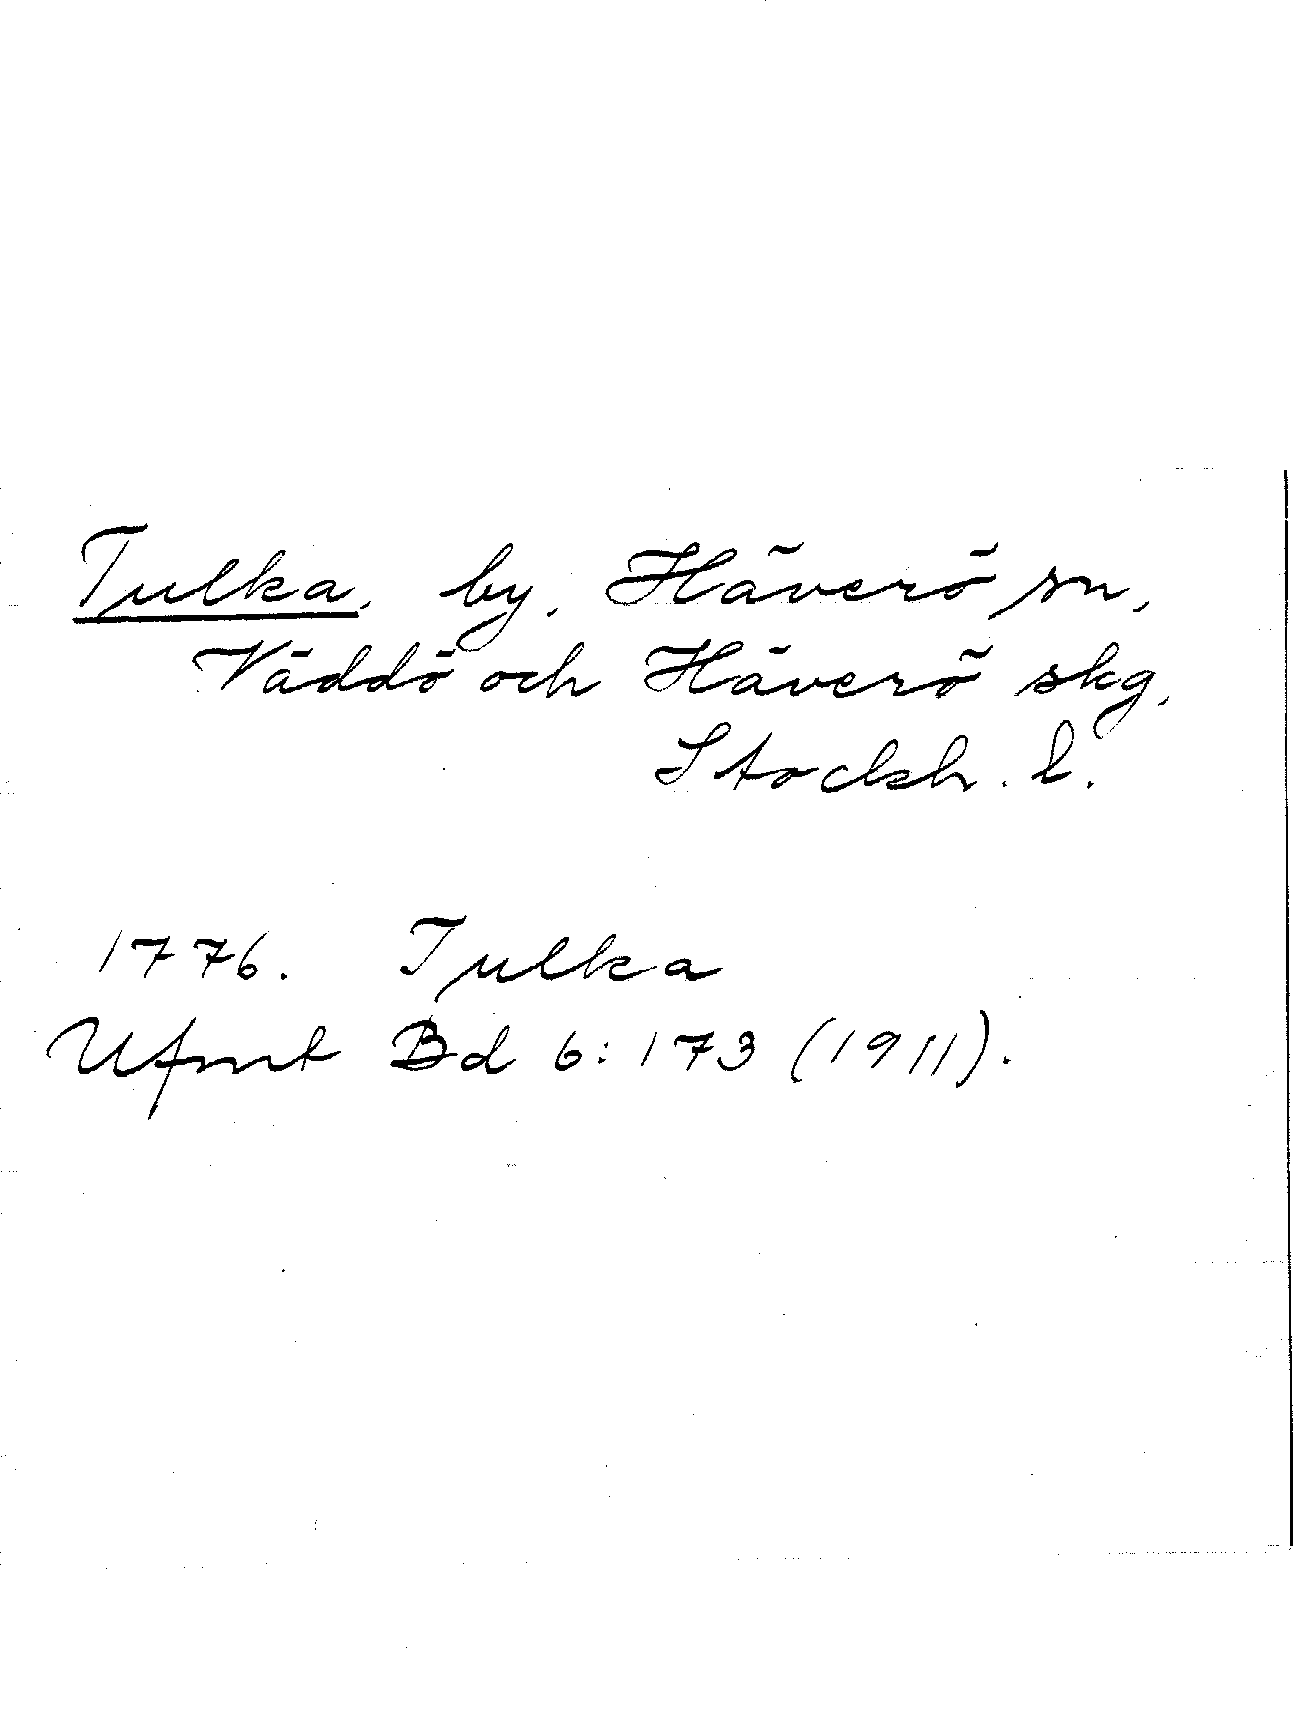 Tulka, by, Häverö sn,
Väddö och Häverö skg,
Stockh. l.
1776. Tulka
Ufmt Bd 6:173 (1911).